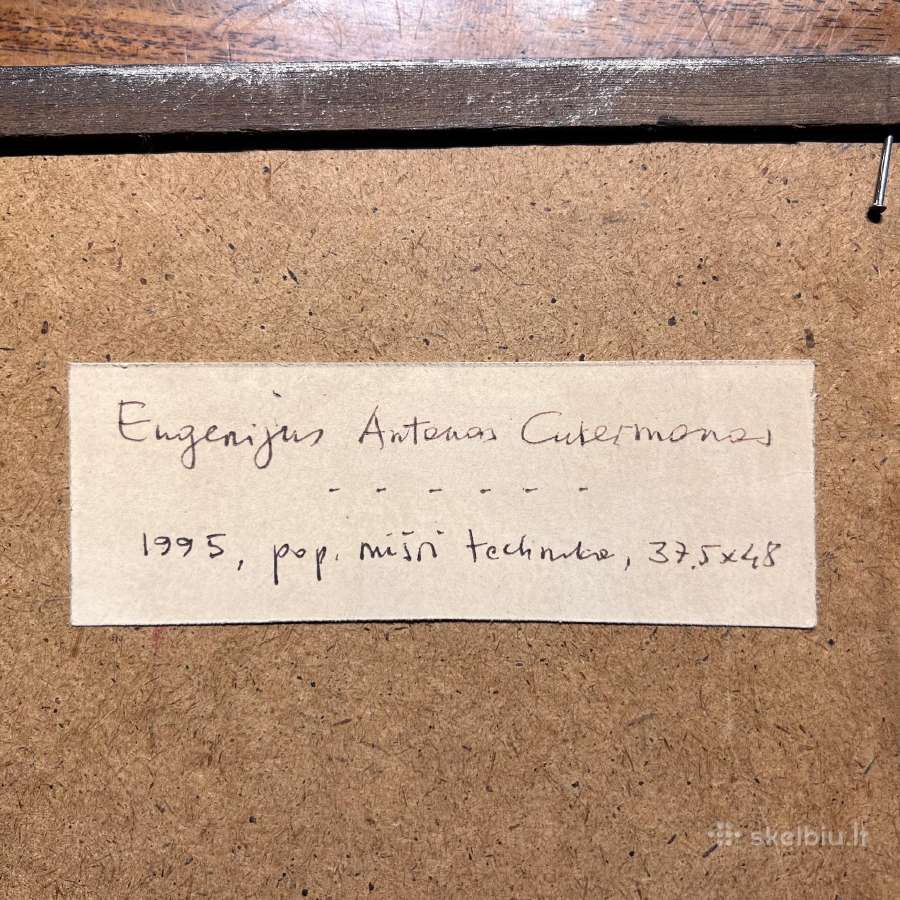 Eugenijus Antanas Cukermanas
- - - - - -
1995, pop. mišri technika, 37,5x48
skelbiu.lt